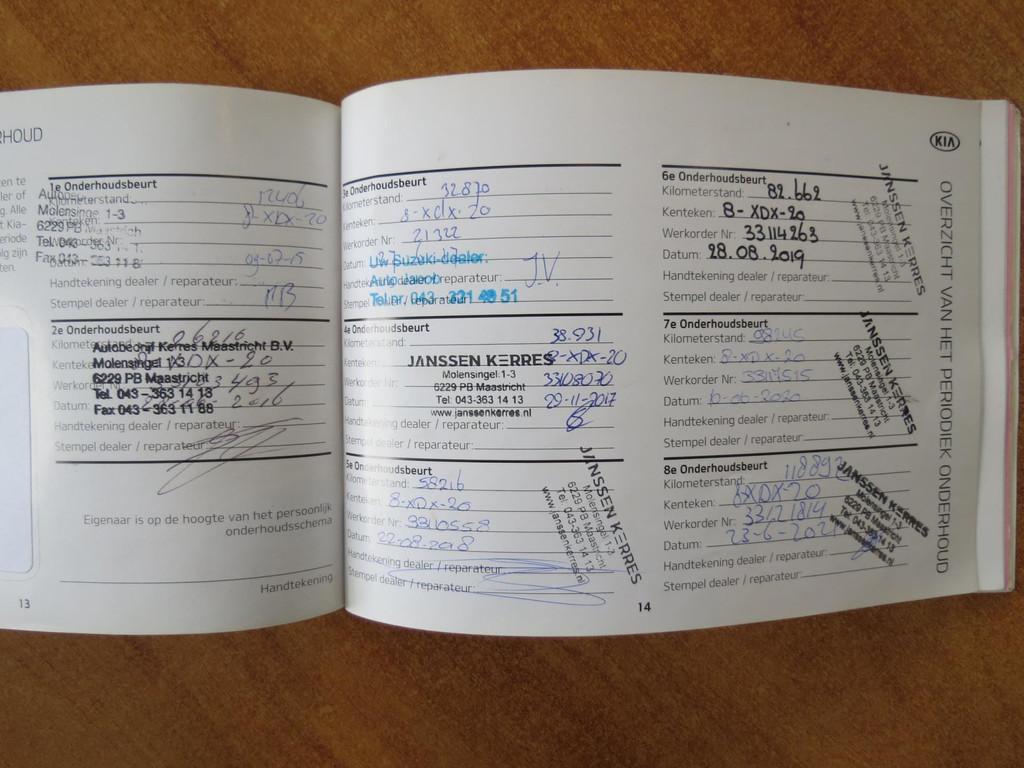 RHOUD
1e Onderhoudsbeurt
Kilometerstand:
Molensingel 1-3
8-XDX-20
6229 PB Maastricht
Werkorder Nr:
Tel. 043 - 363
Datum: 09-07-15
Fax 043 - 363 11 8
Handtekening dealer / reparateur:
Stempel dealer / reparateur:
2e Onderhoudsbeurt
Kilometerstand: 26216
Autobedrijf Kerres Maastricht B.V.
Molensingel 1-3
XDX-20
6229 PB Maastricht
Tel. 043 - 363 14 13
Datum: 2016
Fax 043 - 363 11 88
Handtekening dealer / reparateur:
Stempel dealer / reparateur:
Eigenaar is op de hoogte van het persoonlijk
onderhoudsschema
Handtekening
13
3e Onderhoudsbeurt
Kilometerstand: 32870
Kenteken: 8-xdx-20
Werkorder Nr: 21322
Datum:
Uw Suzuki-dealer:
Auto Jacob
reparateur: J.V.
Tel.nr. 043 - 321 49 51
4e Onderhoudsbeurt
Kilometerstand: 38.931
Kenteken: 8-XDX-20
JANSSEN KERRES
Molensingel 1-3
Werkorder Nr: 33108070
6229 PB Maastricht
Tel: 043-363 14 13
Datum: 29-11-2017
www.janssenkerres.nl
Handtekening dealer / reparateur:
Stempel dealer / reparateur:
5e Onderhoudsbeurt
Kilometerstand: 58216
Kenteken: 8-XDX-20
Werkorder Nr:
Datum: 22-08-2018
Handtekening dealer / reparateur:
Stempel dealer / reparateur:
JANSSEN KERRES
Molensingel 1-3
6229 PB Maastricht
Tel: 043-363 14 13
www.janssenkerres.nl
14
6e Onderhoudsbeurt
Kilometerstand: 82.662
Kenteken: 8-XDX-20
Werkorder Nr: 33114263
Datum: 28.08.2019
Handtekening dealer / reparateur:
Stempel dealer / reparateur:
JANSSEN KERRES
Molensingel 1-3
6229 PB Maastricht
Tel: 043-363 14 13
www.janssenkerres.nl
7e Onderhoudsbeurt
Kilometerstand: 98245
Kenteken: 8-XDX-20
Werkorder Nr: 33117515
Datum: -06-2020
Handtekening dealer / reparateur:
Stempel dealer / reparateur:
JANSSEN KERRES
Molensingel 1-3
6229 PB Maastricht
Tel: 043-363 14 13
www.janssenkerres.nl
8e Onderhoudsbeurt
Kilometerstand: 118892
Kenteken: 8XDX-20
Werkorder Nr: 33121814
Datum: 23-6-2021
Handtekening dealer / reparateur:
Stempel dealer / reparateur:
JANSSEN KERRES
Molensingel 1-3
6229 PB Maastricht
Tel: 043-363 14 13
www.janssenkerres.nl
KIA
OVERZICHT VAN HET PERIODIEK ONDERHOUD